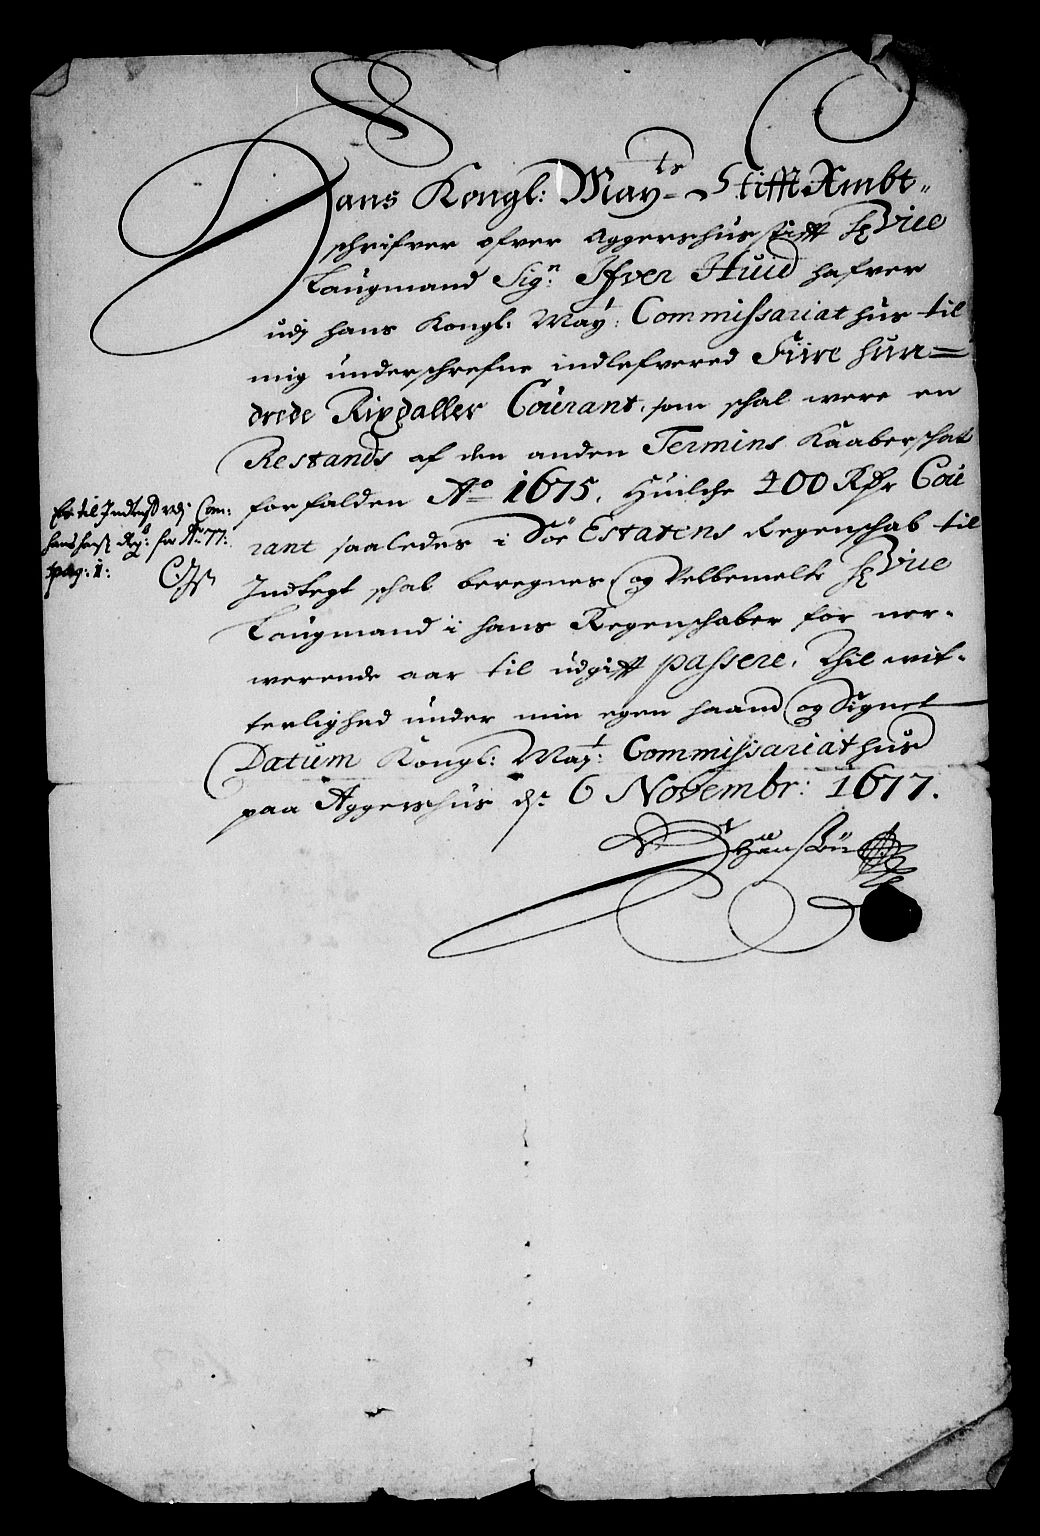 Hans Kongl: May:ts Stifft Ambt-
schrifver ofver Aggershus stifft h: Vice
Laugmand Sig:n Ifver Huid hafver
udj hans Kongl: May:t Commissariat hus til
mig underschrefne indlefvered Fiire hun=
drede Rixdaller Courant, som schal were en
Restands af den anden Termins Kaaberschat
forfalden A:o 1675, Huilche 400 Rdr Cou
rant saaledes i Söe Estatens Regenschab til
Indtegt schal beregnes og Velbemelte h: Vice
Laugmand i hans Regenschaber for ner-
werende aar til udgifft passere, Thil wit-
terlighed under min egen haand og Signet
Datum Kongl: May:t Commissariat hus
paa Aggershus d: 6 Novembr: 1677.
Er til Indtegt udj Com:
Reg: for A:o 77:
pag: 1: